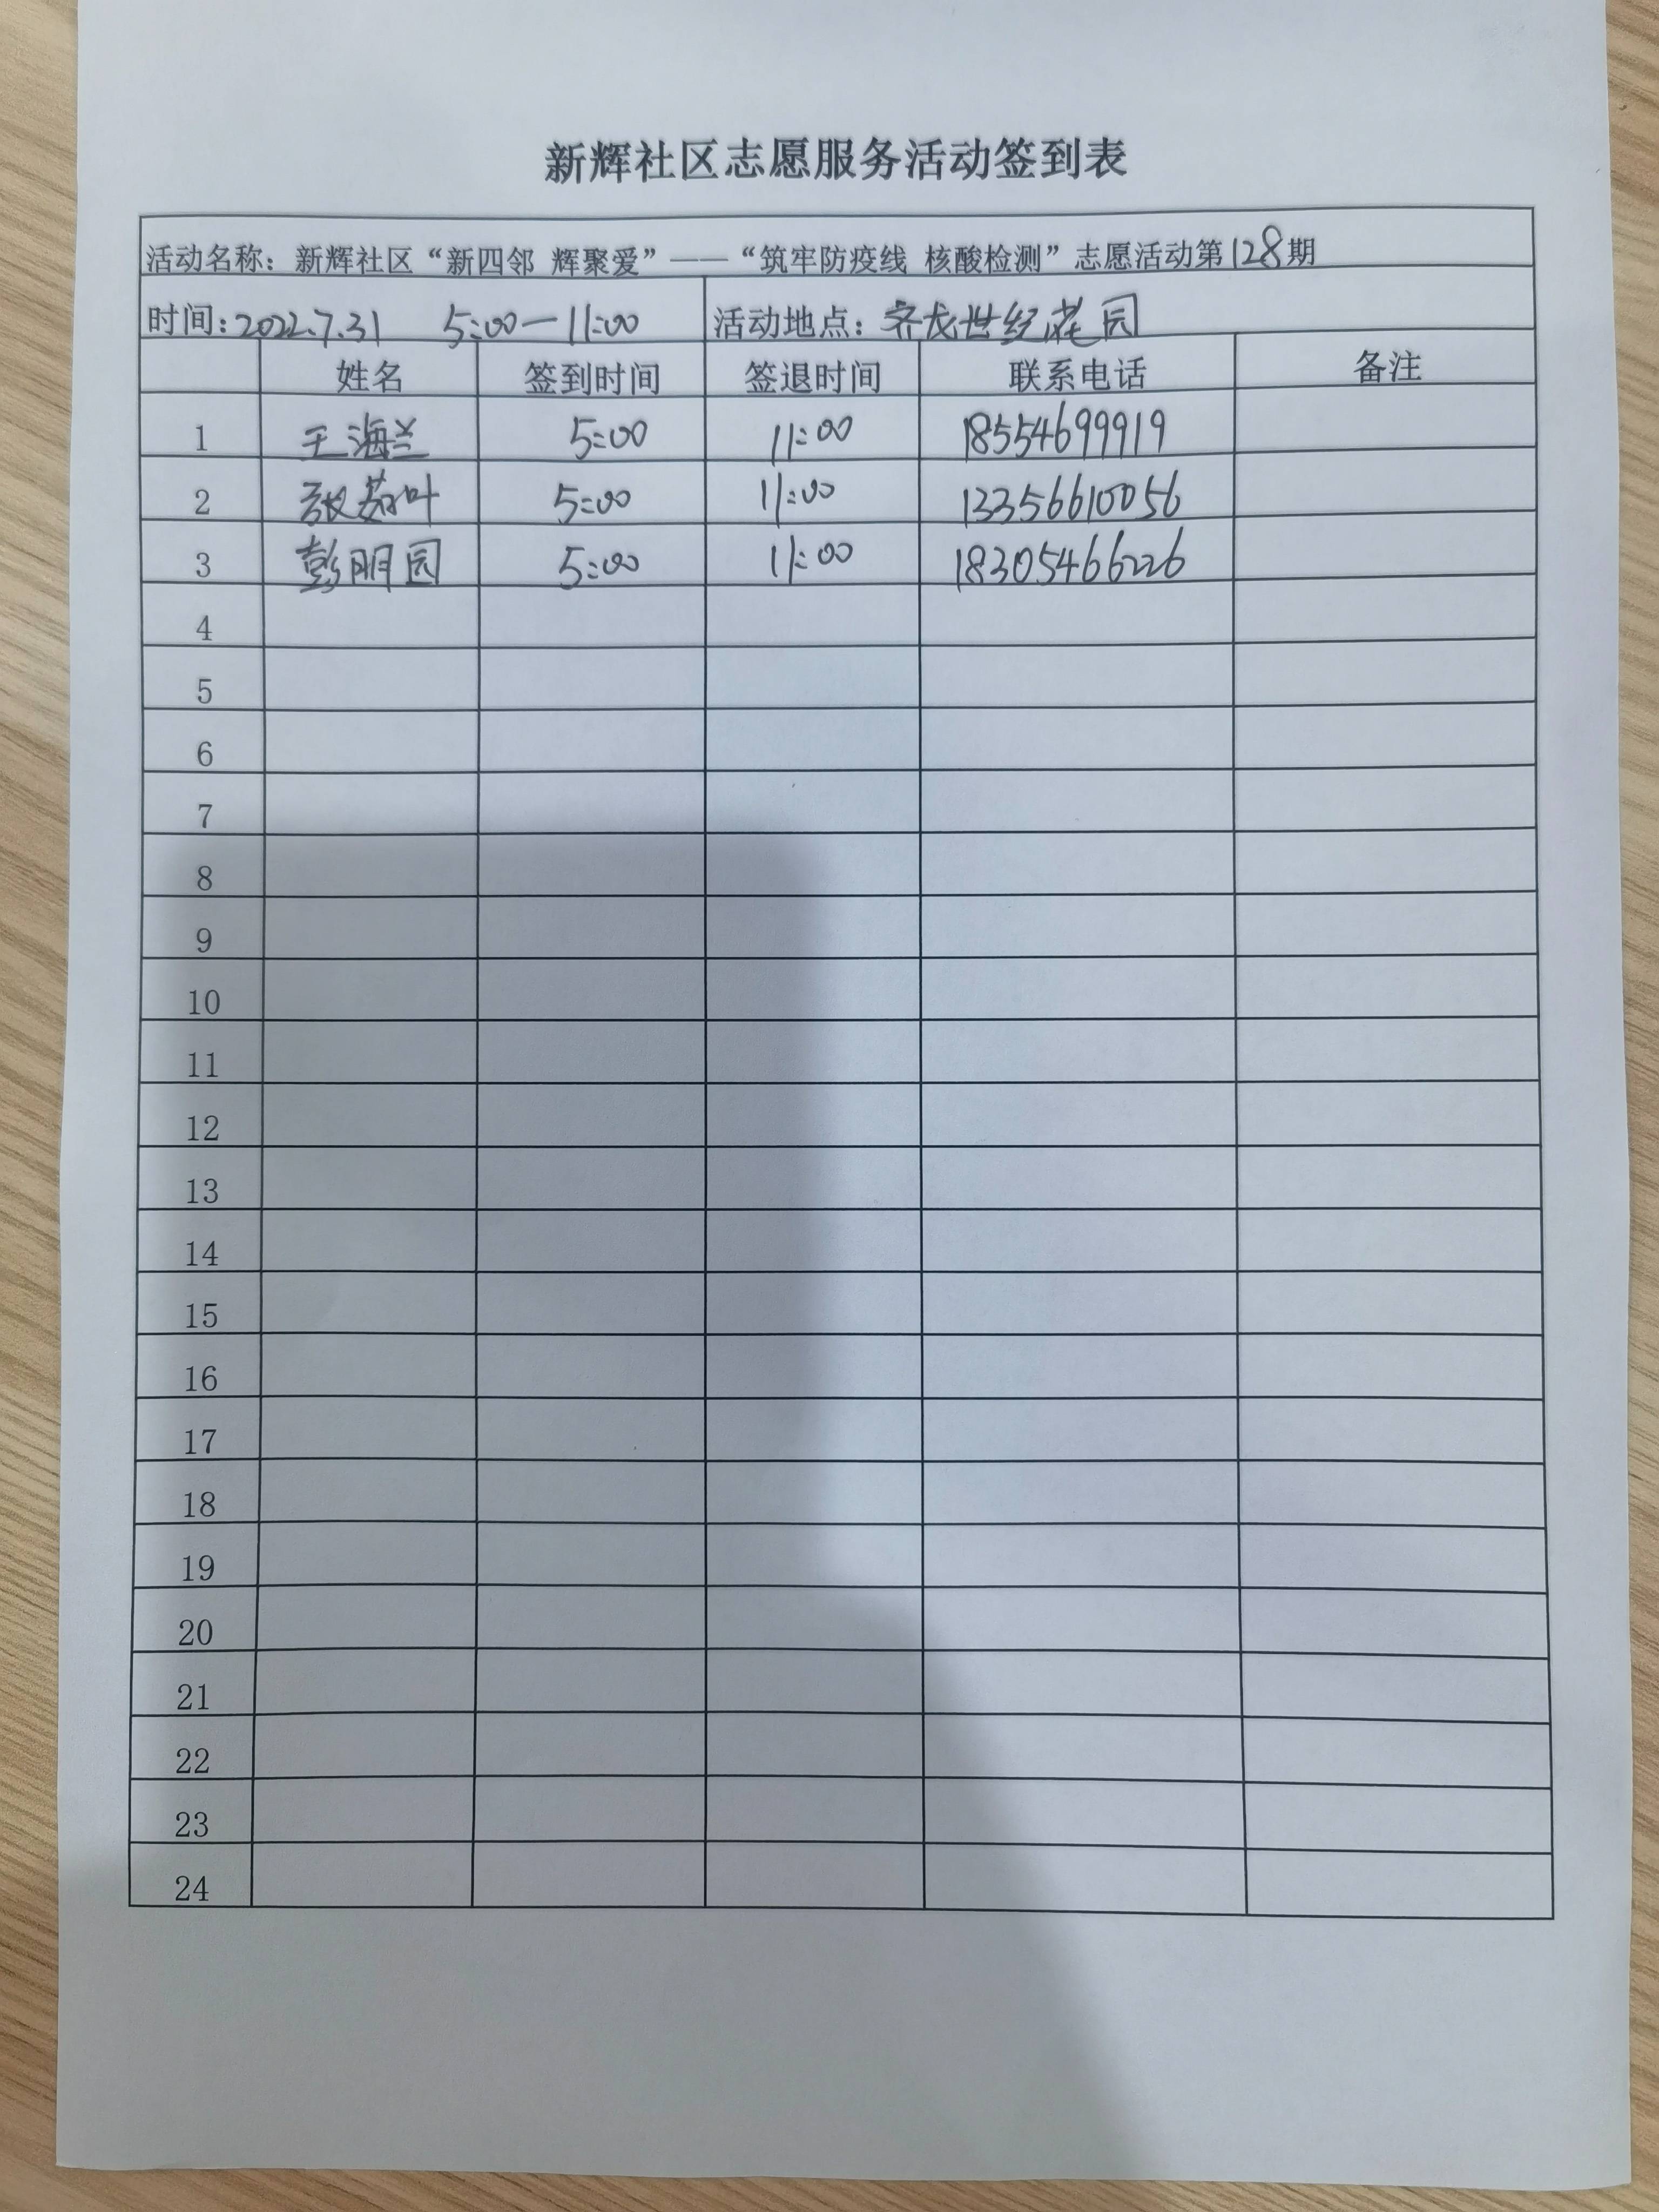 新辉社区志愿服务活动签到表
活动名称：新辉社区“新四邻 辉聚爱”——“筑牢防疫线 核酸检测”志愿活动第128期
时间：2022.7.31 5:00—11:00 活动地点：齐龙世纪花园
姓名 签到时间 签退时间 联系电话 备注
1 王海兰 5:00 11:00 18554699919
2 张荷叶 5:00 11:00 13356610056
3 彭明园 5:00 11:00 18305466226
4
5
6
7
8
9
10
11
12
13
14
15
16
17
18
19
20
21
22
23
24